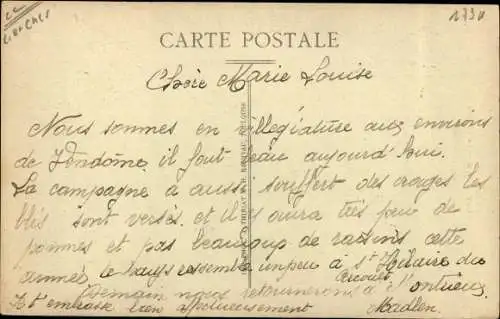 Loir et Cher
CARTE POSTALE
Chère Marie Louise
Nous sommes en villégiature aux environs
de Vendôme il fait beau aujourd'hui.
La campagne a aussi souffert des orages les
blés sont versés. et il y aura très peu de
pommes et pas beaucoup de raisins cette
année. le pays ressemble un peu à St Hilaire du
Demain nous retournerons à
t'embrasse bien affectueusement Madlen.